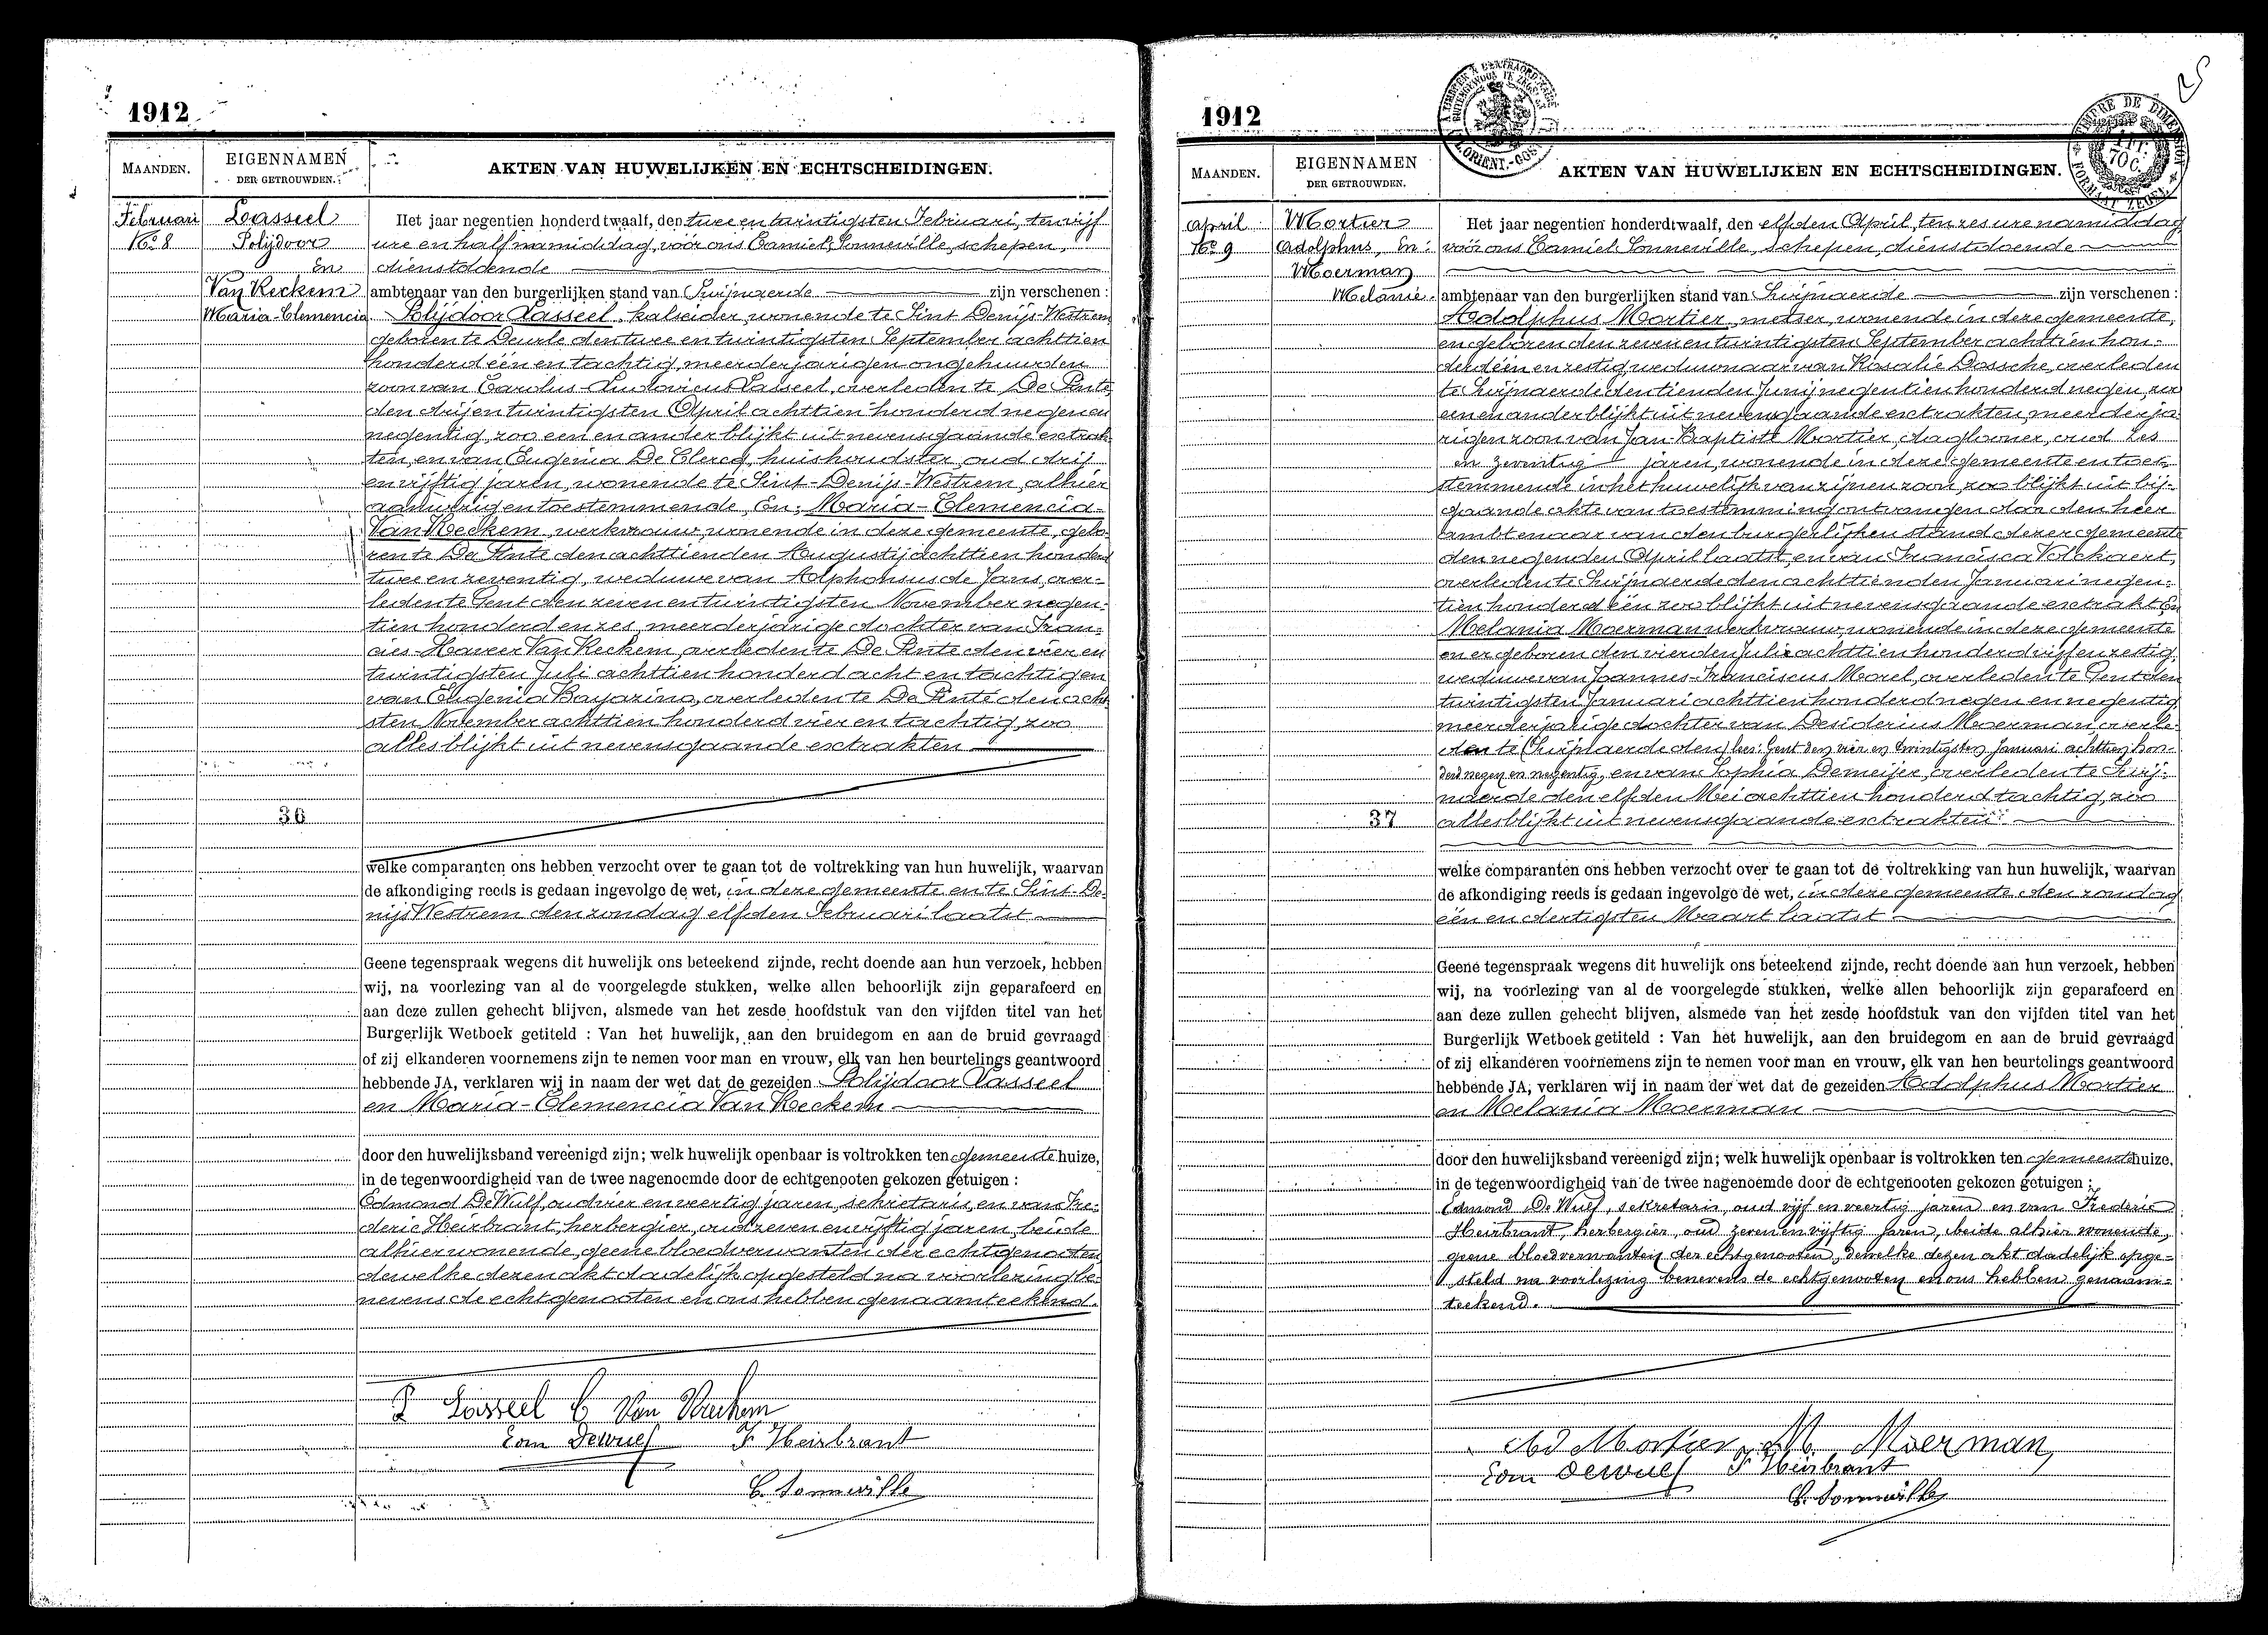 1912
MAANDEN.
EIGENNAMEN
DER GETROUWDEN.
AKTEN VAN HUWELIJKEN EN ECHTSCHEIDINGEN.
Februari
No 8
Lasseel
Polijdoor
En
Van Reckem
Maria-Clemencia
Het jaar negentien honderd twaalf, den twee en twintigsten Februari, ten vijf
ure en half namiddag, vóór ons Camiel Sonneville, schepen,
dienstdoende
ambtenaar van den burgerlijken stand van Swijnaerde zijn verschenen:
Polijdoor Lasseel, kalseider, wonende te Sint Denijs-Westrem
geboren te Deurle den twee en twintigsten September achttien
honderd één en tachtig, meerderjarigen ongehuwden
zoon van Carolus-Ludovicus Lasseel, overleden te De Pinte
den drij en twintigsten April achttien honderd negen en
negentig, zoo een en ander blijkt uit nevensgaande extrak-
ten, en van Eugenia De Clercq, huishoudster, oud drij
en vijftig jaren, wonende te Sint-Denijs-Westrem, alhier
aanwezig en toestemmende, En: Maria-Clemencia
Van Reckem, werkvrouw, wonende in deze gemeente, gebo-
ren te De Pinte den achttienden Augustij achttien honderd
twee en zeventig, weduwe van Alphonsus de Jans, over-
leden te Gent den zeven en twintigsten November negen-
tien honderd en zes, meerderjarige dochter van Fran-
cies-Xaveer Van Reckem, overleden te De Pinte den vier en
twintigsten Juli achttien honderd acht en tachtig en
van Eugenia Bayazino, overleden te De Pinte den acht
sten November achttien honderd vier en tachtig, zoo
alles blijkt uit nevensgaande extrakten
36
welke comparanten ons hebben verzocht over te gaan tot de voltrekking van hun huwelijk, waarvan
de afkondiging reeds is gedaan ingevolge de wet, in deze gemeente en te Sint-De-
nijs Westrem den zondag elfden Februari laatst
Geene tegenspraak wegens dit huwelijk ons beteekend zijnde, recht doende aan hun verzoek, hebben
wij, na voorlezing van al de voorgelegde stukken, welke allen behoorlijk zijn geparafeerd en
aan deze zullen gehecht blijven, alsmede van het zesde hoofdstuk van den vijfden titel van het
Burgerlijk Wetboek getiteld : Van het huwelijk, aan den bruidegom en aan de bruid gevraagd
of zij elkanderen voornemens zijn te nemen voor man en vrouw, elk van hen beurtelings geantwoord
hebbende JA, verklaren wij in naam der wet dat de gezeiden Polijdoor Lasseel
en Maria-Clemencia Van Reckem
door den huwelijksband vereenigd zijn; welk huwelijk openbaar is voltrokken ten gemeente huize,
in de tegenwoordigheid van de twee nagenoemde door de echtgenooten gekozen getuigen :
Edmond De Wulf, oud vier en veertig jaren, sekretaris, en van Fre-
deric Heirbrant, herbergier, oud zeven en vijftig jaren, beide
alhier wonende, geene bloedverwanten der echtgenooten
dewelke dezen akt dadelijk opgesteld na voorlezing be-
nevens de echtgenooten en ons hebben genaamteekend.
P Lasseel C Van Reckem
Edm Dewulf F Heirbrant
C. Sonneville
1912
MAANDEN.
EIGENNAMEN
DER GETROUWDEN.
AKTEN VAN HUWELIJKEN EN ECHTSCHEIDINGEN.
April
No 9
Mortier
Adolphus, En:
Moerman
Melanie.
Het jaar negentien honderd twaalf, den elfden April, ten zes ure namiddag
vóór ons Camiel Sonneville, schepen, dienstdoende
ambtenaar van den burgerlijken stand van Swijnaerde zijn verschenen :
Adolphus Mortier, metser, wonende in deze gemeente,
en geboren den zeven en twintigsten September achttien hon-
derd één en zestig, weduwnaar van Rosalie Dossche, overleden
te Swijnaerde den tienden Junij negentien honderd negen, zoo
een en ander blijkt uit nevensgaande extrakten, meerderja-
rigen zoon van Jan-Baptiste Mortier, daglooner, oud zes
en zeventig jaren, wonende in deze gemeente en toe-
stemmende in het huwelijk van zijnen zoon, zoo blijkt uit bij-
gaande akte van toestemming ontvangen door den heer
ambtenaar van den burgerlijken stand dezer gemeente
den negenden April laatst, en van Francisca Volckaert,
overleden te Swijnaerde den achttienden Januari negen-
tien honderd één zoo blijkt uit nevensgaande extrakt En
Melania Moerman werkvrouw, wonende in deze gemeente
en er geboren den vierden Juli achttien honderd vijf en zestig,
weduwe van Joannes-Franciscus Morel, overleden te Gent den
twintigsten Januari achttien honderd negen en negentig
meerderjarige dochter van Desiderius Moerman, overle-
den te (Swijnaerde den) lees: Gent den vier en twintigsten Januari achttien hon-
derd negen en negentig, en van Sophia Demeijer, overleden te Swij-
naerde den elfden Mei achttien honderd tachtig, zoo
alles blijkt uit nevensgaande extrakten
37
welke comparanten ons hebben verzocht over te gaan tot de voltrekking van hun huwelijk, waarvan
de afkondiging reeds is gedaan ingevolge de wet, in deze gemeente den zondag
één en dertigsten Maart laatst
Geene tegenspraak wegens dit huwelijk ons beteekend zijnde, recht doende aan hun verzoek, hebben
wij, na voorlezing van al de voorgelegde stukken, welke allen behoorlijk zijn geparafeerd en
aan deze zullen gehecht blijven, alsmede van het zesde hoofdstuk van den vijfden titel van het
Burgerlijk Wetboek getiteld : Van het huwelijk, aan den bruidegom en aan de bruid gevraagd
of zij elkanderen voornemens zijn te nemen voor man en vrouw, elk van hen beurtelings geantwoord
hebbende JA, verklaren wij in naam der wet dat de gezeiden Adolphus Mortier
en Melania Moerman
door den huwelijksband vereenigd zijn; welk huwelijk openbaar is voltrokken ten gemeente huize,
in de tegenwoordigheid van de twee nagenoemde door de echtgenooten gekozen getuigen :
Edmond De Wulf, sekretaris, oud vijf en veertig jaren en van Frederic
Heirbrant, herbergier, oud zeven en vijftig jaren, beide alhier wonende,
geene bloedverwanten der echtgenooten, dewelke dezen akt dadelijk opge-
steld na voorlezing benevens de echtgenooten en ons hebben genaam-
teekend.
Ad Mortier M. Moerman
Edm Dewulf F Heirbrant
C. Sonneville